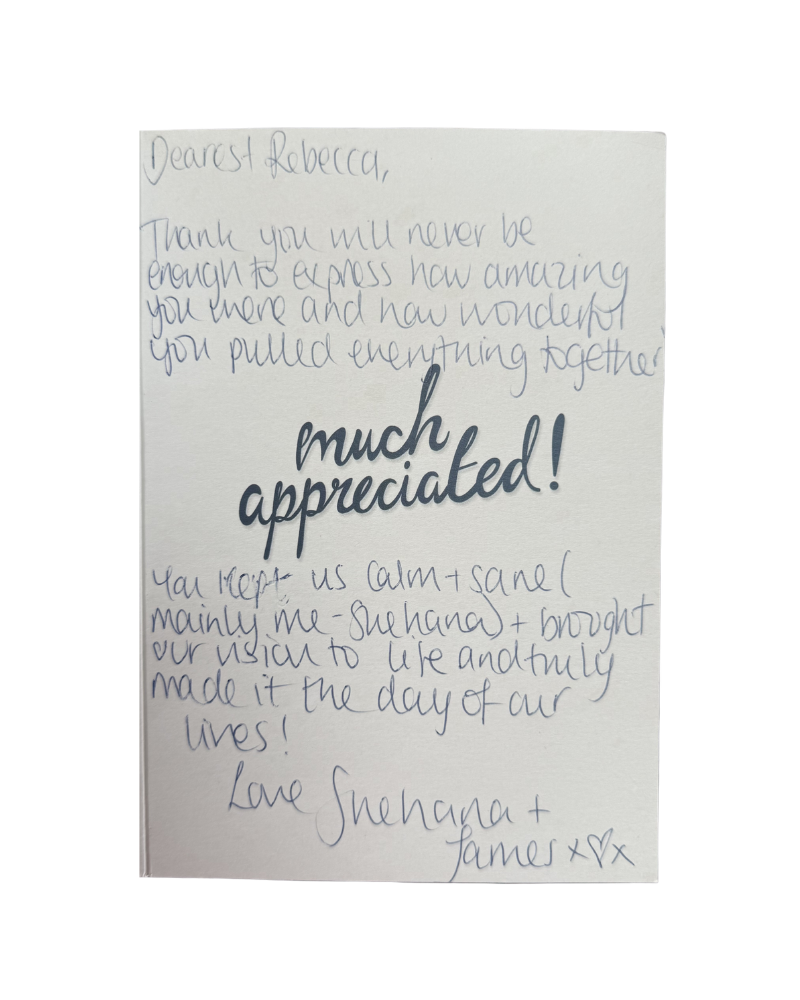 Dearest Rebecca,
Thank you will never be
enough to express how amazing
you were and how wonderful
you pulled everything together
much
appreciated!
You kept us calm + sane (
mainly me - Shehana) + brought
our vision to life and truly
made it the day of our
lives!
Love Shehana +
James x♡x